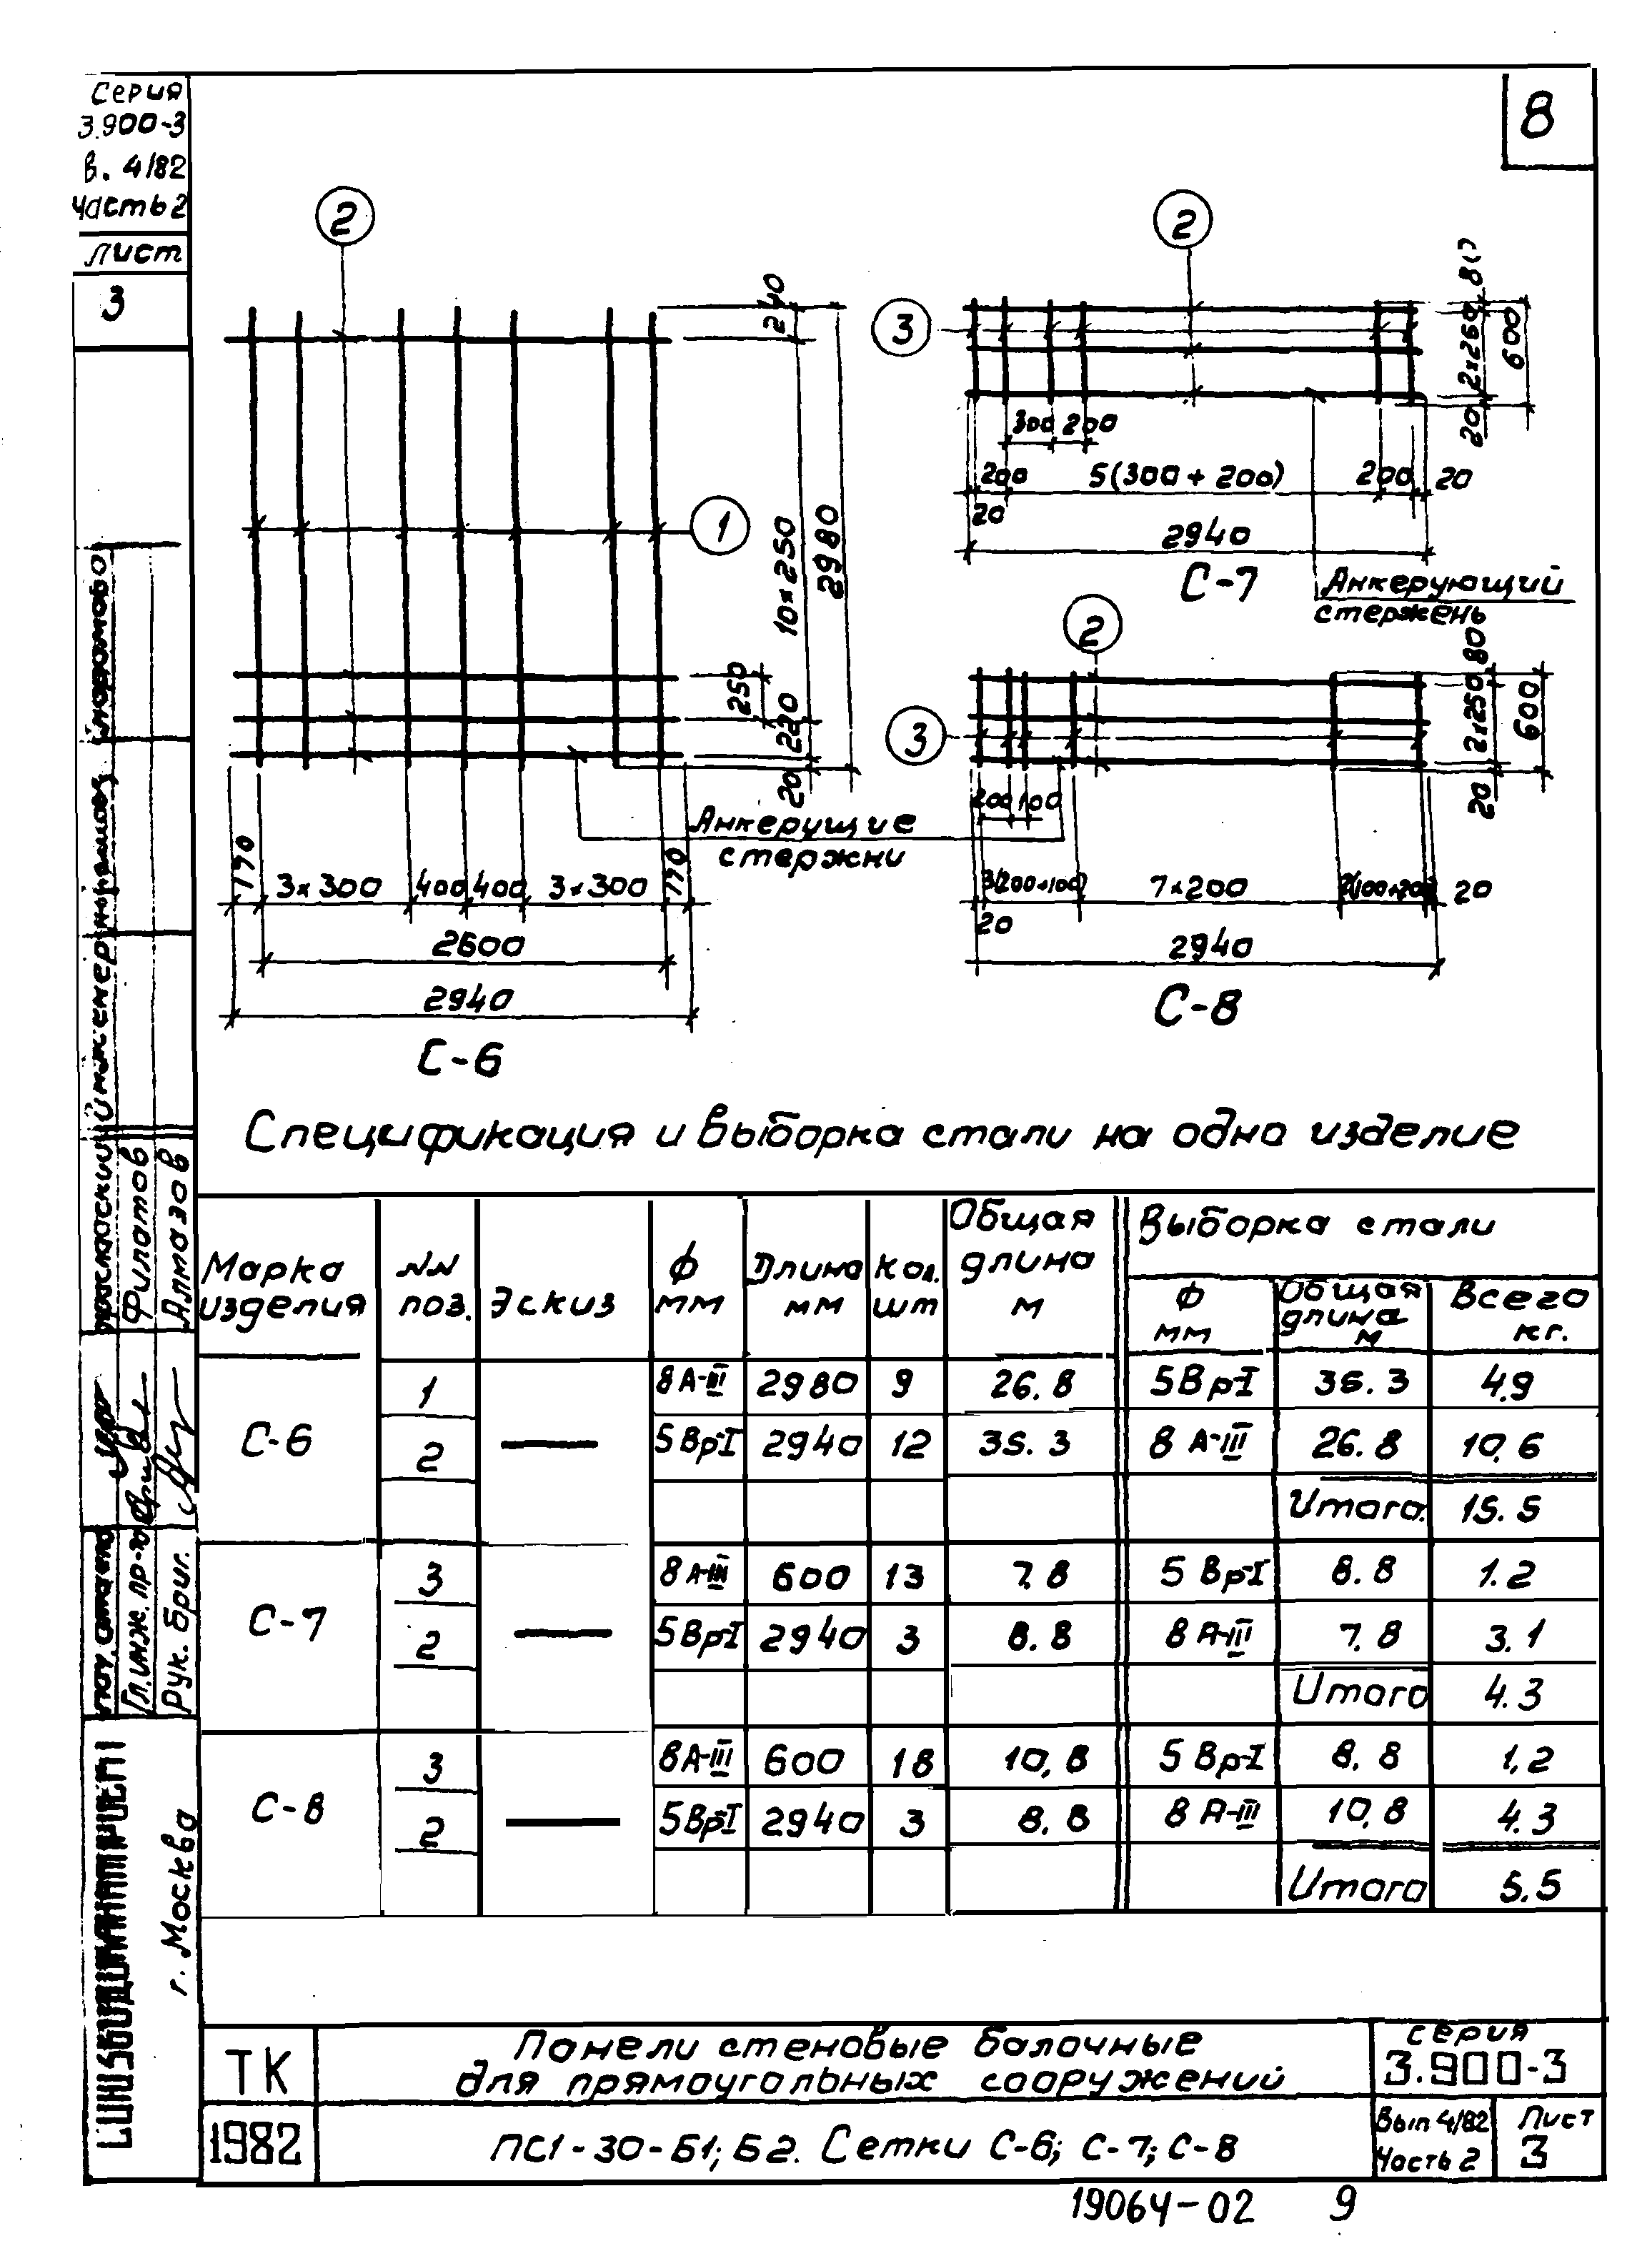 Серия
3.900-3
в. 4/82
часть 2
лист
3
8
2
1
240
10×250
2980
250
220
20
170
3×300
400
400
3×300
170
2600
2940
С-6
Анкерущие
стержни
2
3
80
2×260
600
20
300
200
200
5(300+200)
200
20
20
2940
С-7
Анкерующий
стержень
2
3
80
2×250
600
20
200
100
3(200+100)
7×200
2(100+200)
20
20
2940
С-8
Спецификация и выборка стали на одно изделие
Марка изделия
NN поз.
Эскиз
Ф мм
Длина мм
Кол. шт
Общая длина м
Выборка стали
Ф мм
Общая длина м
Всего кг.
С-6
1 8А-III 2980 9 26.8 5Вр-I 35.3 4.9
2 5Вр-I 2940 12 35.3 8 А-III 26.8 10,6
Итого. 15.5
С-7
3 8А-III 600 13 7.8 5 Вр-I 8.8 1.2
2 5Вр-I 2940 3 8.8 8 А-III 7.8 3.1
Итого 4.3
С-8
3 8А-III 600 18 10,8 5 Вр-I 8.8 1,2
2 5Вр-I 2940 3 8.8 8 А-III 10,8 4.3
Итого 5.5
Филатов
Алмазов
Гл. инж. пр-та
Рук. бриг.
г. Москва
ТК
1982
Панели стеновые балочные
для прямоугольных сооружений
ПС1-30-Б1; Б2. Сетки С-6; С-7; С-8
серия
3.900-3
Вып 4/82
Часть 2
Лист
3
19064-02 9